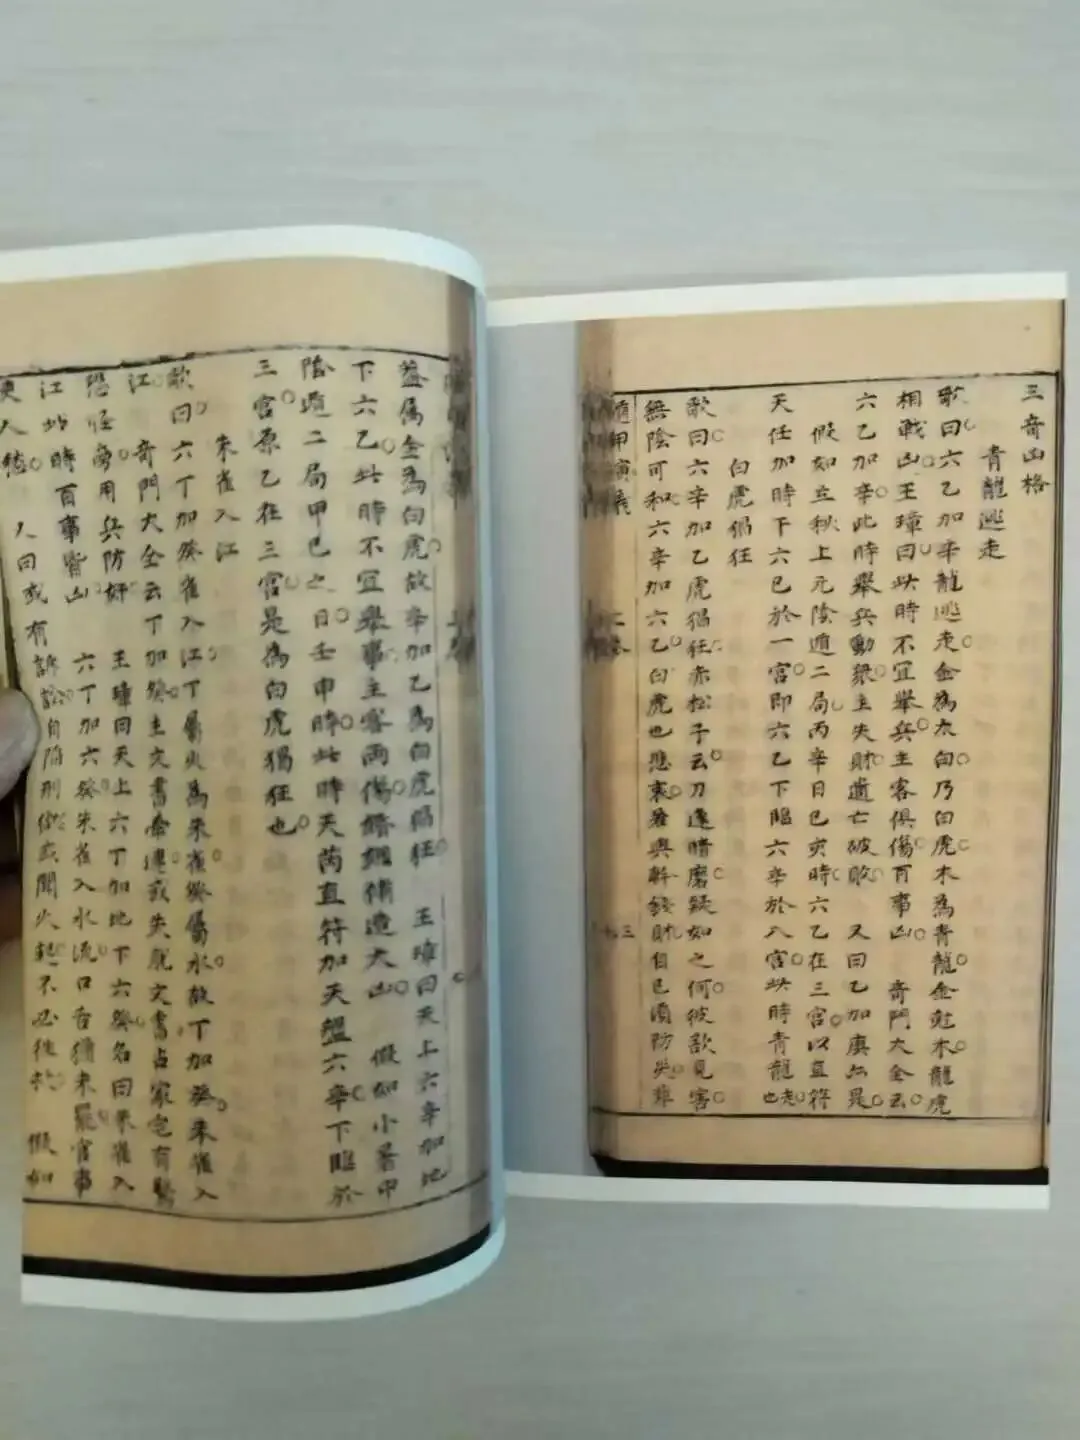 三奇凶格
青龍逃走
歌曰六乙加辛龍逃走金為太白乃白虎木為青龍金尅木龍虎
相戰凶王璋曰此時不宜舉兵主客俱傷百事凶 奇門大全云
六乙加辛此時舉兵動衆主失財遺亡破敗 又曰乙加庚亦是
假如立秋上元陰遁二局丙辛日己亥時六乙在三宮以直符
天任加時下六己於一宮即六乙下臨六辛於八宮此時青龍走也
白虎猖狂
歌曰六辛加乙虎猖狂赤松子云刀邊暗磨疑如之何彼欲見害
無陰可和六辛加六乙白虎也悲哀若與幹錢財自己須防失
遁甲演義
三九
蓋為金為白虎故辛加乙為白虎猖狂 王璋曰天上六辛加地
下六乙此時不宜舉事主客兩傷婚姻補造大凶 假如小暑中
陰遁二局甲己之日壬申時此時天芮直符加天盤六辛下臨於
三宮原乙在三宮是為白虎猖狂也
朱雀入江
歌曰六丁加癸雀入江丁屬火為朱雀癸屬水故丁加癸朱雀入
江 奇門大全云丁加癸主文書牽連或失脫文書占家宅有驚
恐怪 用兵防奸 王璋曰天上六丁加地下六癸名曰朱雀入
江此時百事皆凶 六丁加六癸朱雀入水流口舌猶未罷官事
使人愁 又曰或有訴訟自陷刑 或聞火起不必往救 假如